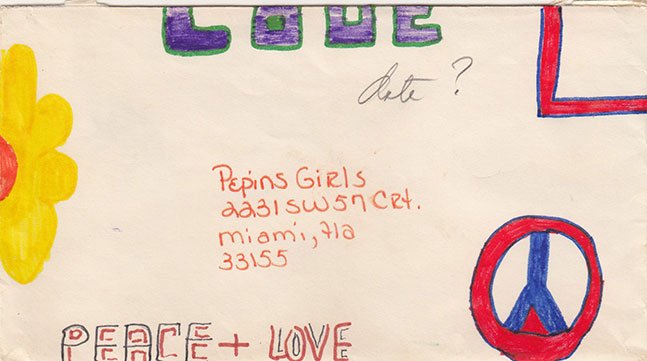 LOVE
date ?
Pepins Girls
2231 SW 57 CRt.
miami, fla
33155
PEACE + LOVE